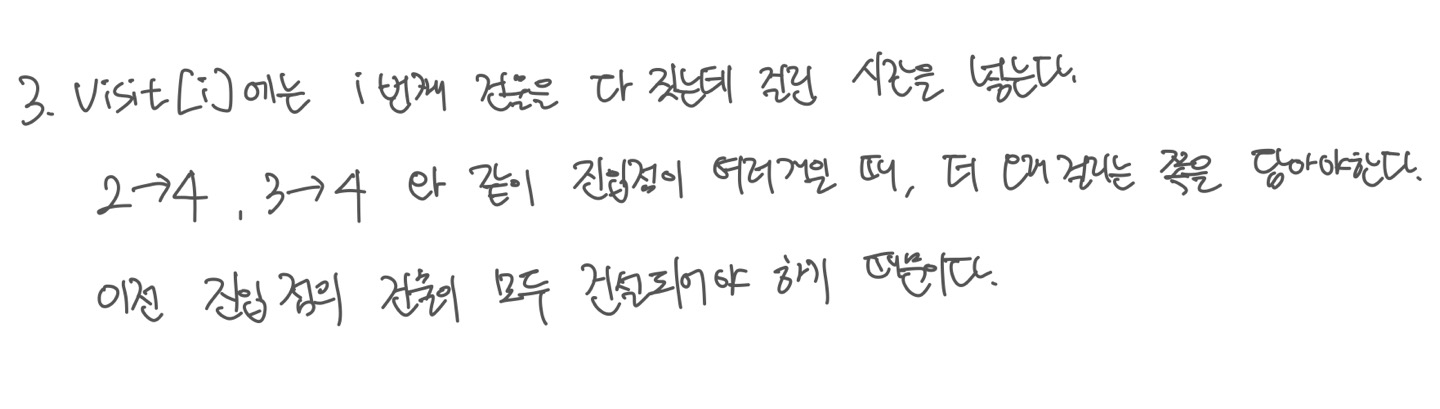 3. Visit[i]에는 i번째 건물을 다 짓는데 걸린 시간을 넣는다.
2→4, 3→4 와 같이 진입점이 여러개일 때, 더 오래 걸리는 쪽을 담아야한다.
이전 진입점의 건물이 모두 건설되어야 하기 때문이다.